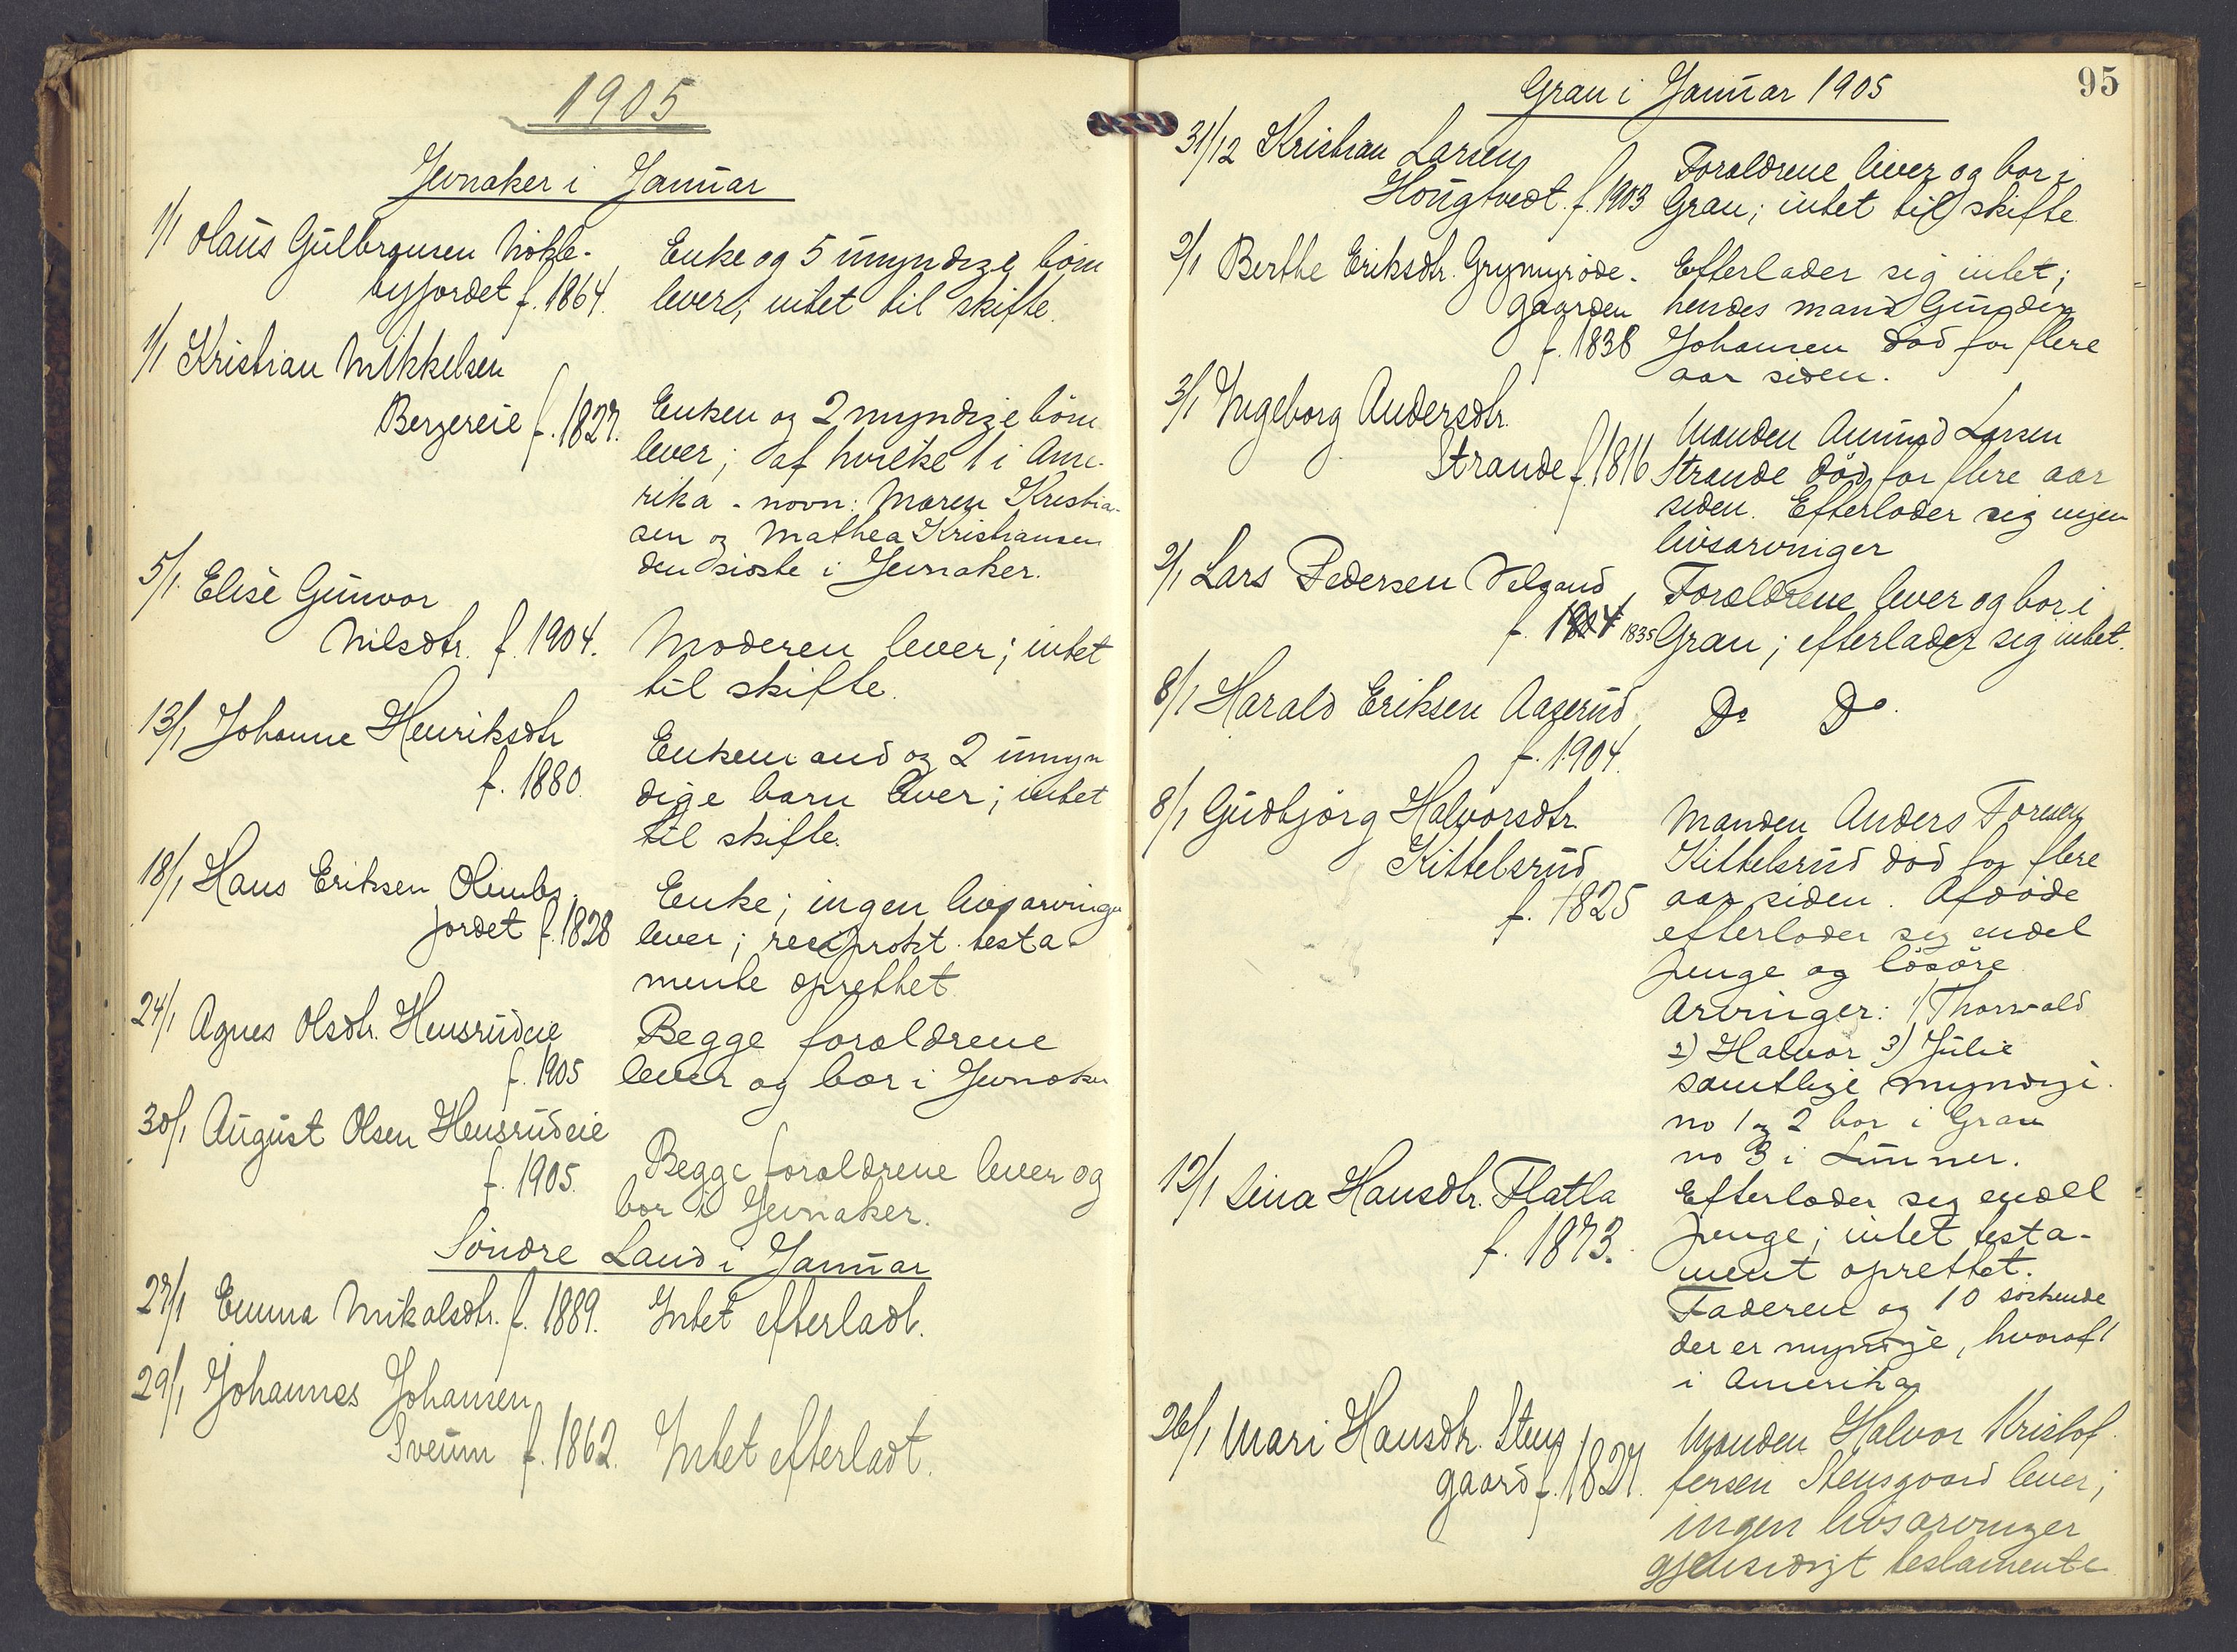 1905
Jevnaker i Januar
1/1 Olaus Gulbransen Nökle-
byjordet f. 1864.
Enke og 5 umyndige börn
lever; intet til skifte.
1/1 Kristian Mikkelsen
Bergereie f. 1827.
Enken og 2 myndige börn
lever; af hvilke 1 i Ame-
rika - navn: Maren Kristian-
sen og Mathea Kristiansen
den sidste i Jevnaker.
5/1 Elise Gunvor
Nilsdtr. f. 1904.
Moderen lever; intet
til skifte.
13/1 Johanne Henriksdtr
f. 1880.
Enkemand og 2 umyn
dige barn lever; intet
til skifte.
18/1 Hans Eriksen
jordet f. 1828
Enke; ingen livsarvinger
lever; reciprokt testa-
mente oprettet.
24/1 Agnes Olsdtr. Hensrudeie
f. 1905
Begge forældrene
lever og bor i Jevnaker
30/1 August Olsen Hensrudeie
f. 1905.
Begge forældrene lever og
bor i Jevnaker.
Söndre Land i Januar
27/1 Emma Mikalsdtr. f. 1889. Intet efterladt.
29/1 Johannes Johansen
Sveum f. 1862. Intet efterladt.
95
Gran i Januar 1905
31/12 Kristian Larsen
Hougtvedt. f. 1903
Forældrene lever og bor i
Gran; intet til skifte
2/1 Berthe Eriksdtr. Grymyröde-
gaarden
f. 1838
Efterlader sig intet;
hendes mand
Johansen död for flere
aar siden.
3/1 Ingeborg Andersdtr.
Strande f. 1816
Manden Amund Larsen
Strande död for flere aar
siden. Efterlader sig ingen
livsarvinger
2/1 Lars Pedersen
f. 1835
Forældrene lever og bor i
Gran; efterlader sig intet.
8/1 Harald Eriksen Aaserud
f. 1904.
Do Do.
8/1 Gudbjörg Halvorsdtr.
Kittelsrud
f. 1825
Manden Anders
Kittelsrud död for flere
aar siden. Afdöde
efterlader sig endel
penge og lösöre
Arvinger: 1) Thorvald
2) Halvor 3) Julie
samtlige myndige.
no 1 og 2 bor i Gran
no 3 i Lunner.
12/1 Lina Hansdtr. Flatla
f. 1873.
Efterlader sig endel
penge; intet testa-
ment oprettet.
Faderen og 10 söskende
der er myndige, hvoraf 1
i Amerika
26/1 Mari Hansdtr. Stens
gaard f. 1827.
Manden Halvor Kristof-
fersen Stensgaard lever;
ingen livsarvinger
gjensidigt testamente